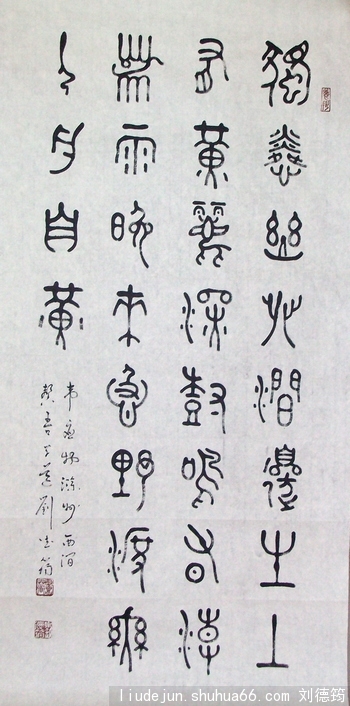 獨憐幽艸澗邊生上
有黃鸝深樹鳴春潮
帶雨晚來急野渡無
人舟自橫
韋應物滁州西澗
劉德筠
liudejun.shuhua66.com 刘德筠